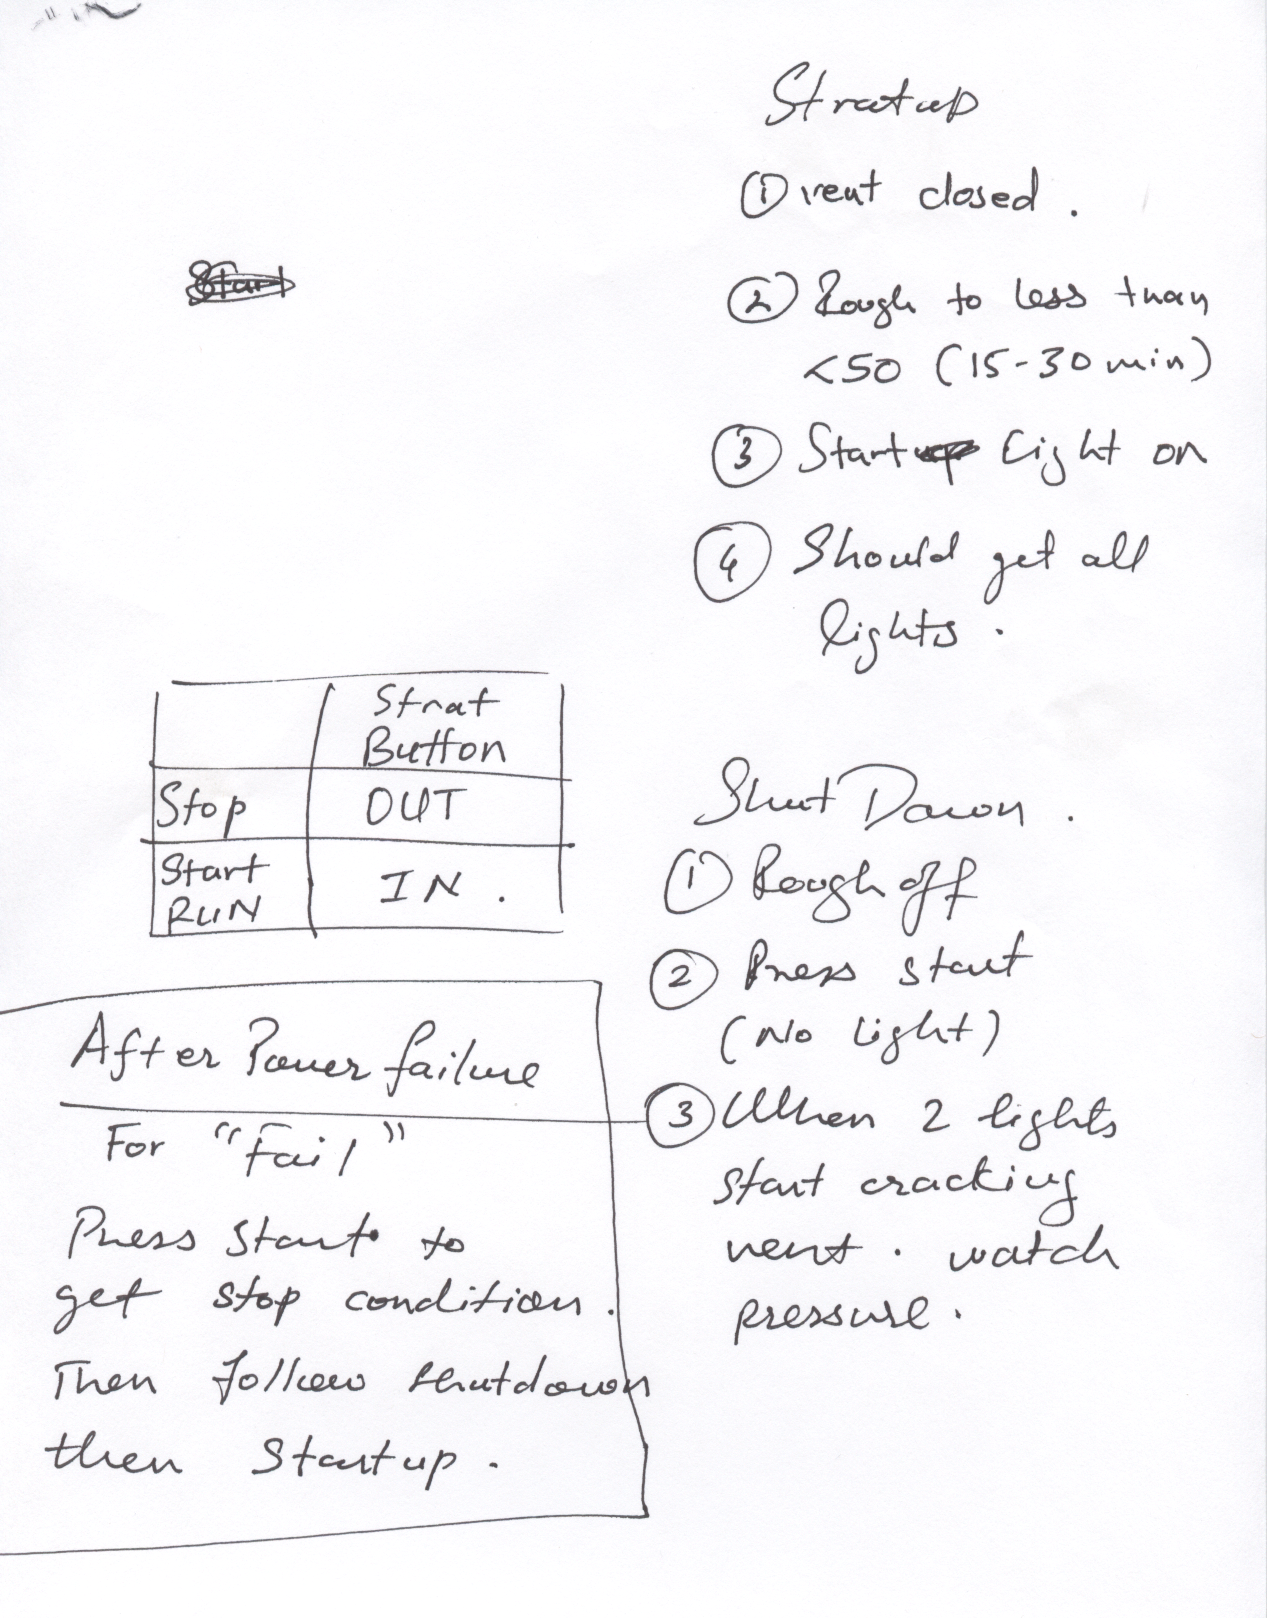 Stratup
① vent closed.
② Rough to less than
<50 (15-30 min)
③ Start Light on
④ Should get all
lights.
Strat
Button
Stop OUT
Start
RUN IN.
Shut Down.
① Rough off
② Press start
(No Light)
③ When 2 lights
start cracking
vent. watch
pressure.
After Power failure
For "Fail"
Press Start to
get stop condition.
Then follow shutdown
then Startup.